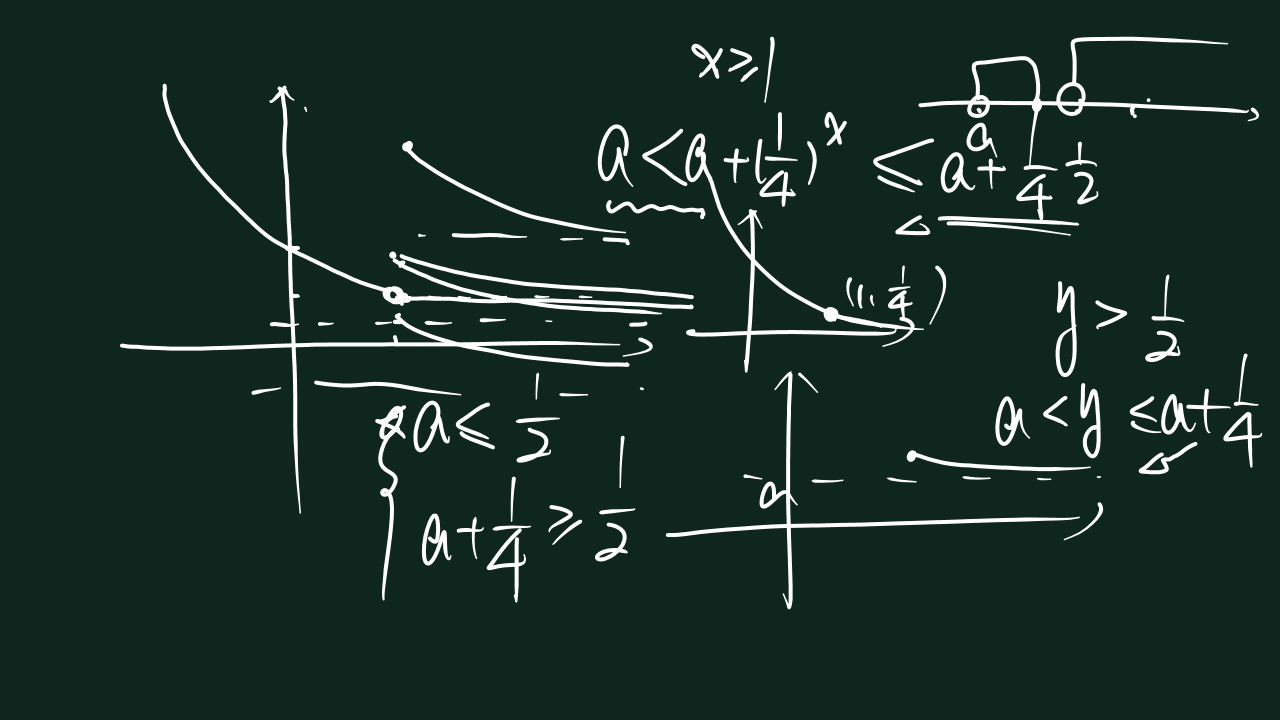 x ≥ 1
a < a + (1/4)^x ≤ a + 1/4 1/2
a
(1, 1/4)
y > 1/2
a < y ≤ a + 1/4
a
a ≤ 1/2
a + 1/4 ≥ 1/2